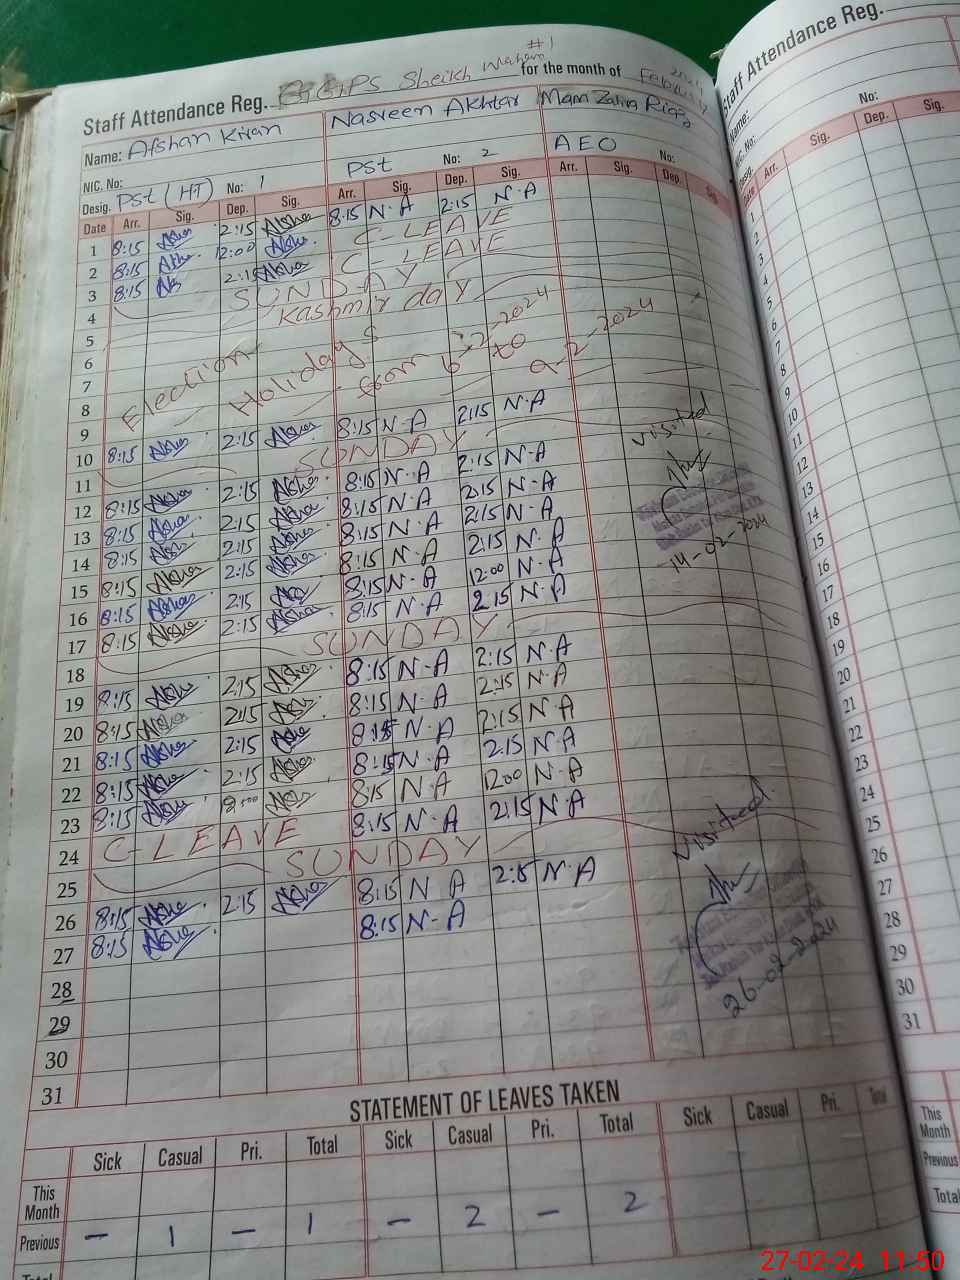 Staff Attendance Reg. GGPS Sheikh Wahan #1 for the month of February
Name: Afshan Kiran Nasreen Akhtar Mam Zahra Riaz
NIC. No:
Desig. PSt (HT) No: 1 PSt No: 2 AEO No:
Date Arr. Sig. Dep. Sig. Arr. Sig. Dep. Sig. Arr. Sig. Dep. Sig.
1 8:15 2:15 8:15 N.A 2:15 N.A
2 8:15 12:00 C-LEAVE
3 8:15 2:15 C-LEAVE
4 SUNDAY
5 Kashmir day
6
7 Election Holidays from 6-2-2024 to 9-2-2024
8
9
10 8:15 2:15 8:15 N-A 2:15 N-A
11 SUNDAY
12 8:15 2:15 8:15 N-A 2:15 N-A
13 8:15 2:15 8:15 N-A 2:15 N-A
14 8:15 2:15 8:15 N-A 2:15 N-A
15 8:15 2:15 8:15 N-A 2:15 N.A
16 8:15 2:15 8:15 N-A 12:00 N-A
17 8:15 2:15 8:15 N-A 2:15 N-A
18 SUNDAY
19 8:15 2:15 8:15 N-A 2:15 N-A
20 8:15 2:15 8:15 N-A 2:15 N-A
21 8:15 2:15 8:15 N-A 2:15 N-A
22 8:15 2:15 8:15 N-A 2:15 N-A
23 8:15 8:15 N-A 12:00 N-A
24 C-LEAVE 8:15 N-A 2:15 N-A
25 SUNDAY
26 8:15 2:15 8:15 N-A 2:15 N-A
27 8:15 8:15 N-A
28
29
30
31
visited
14-02-2024
visited
26-02-2024
STATEMENT OF LEAVES TAKEN
Sick Casual Pri. Total Sick Casual Pri. Total Sick Casual Pri. Total
This Month
Previous - 1 - 1 - 2 - 2
Total
Staff Attendance Reg.
Name:
NIC. No: No:
Desig.
Date Arr. Sig. Dep. Sig.
1
2
3
4
5
6
7
8
9
10
11
12
13
14
15
16
17
18
19
20
21
22
23
24
25
26
27
28
29
30
31
This Month
Previous
Total
27-02-24 11:50